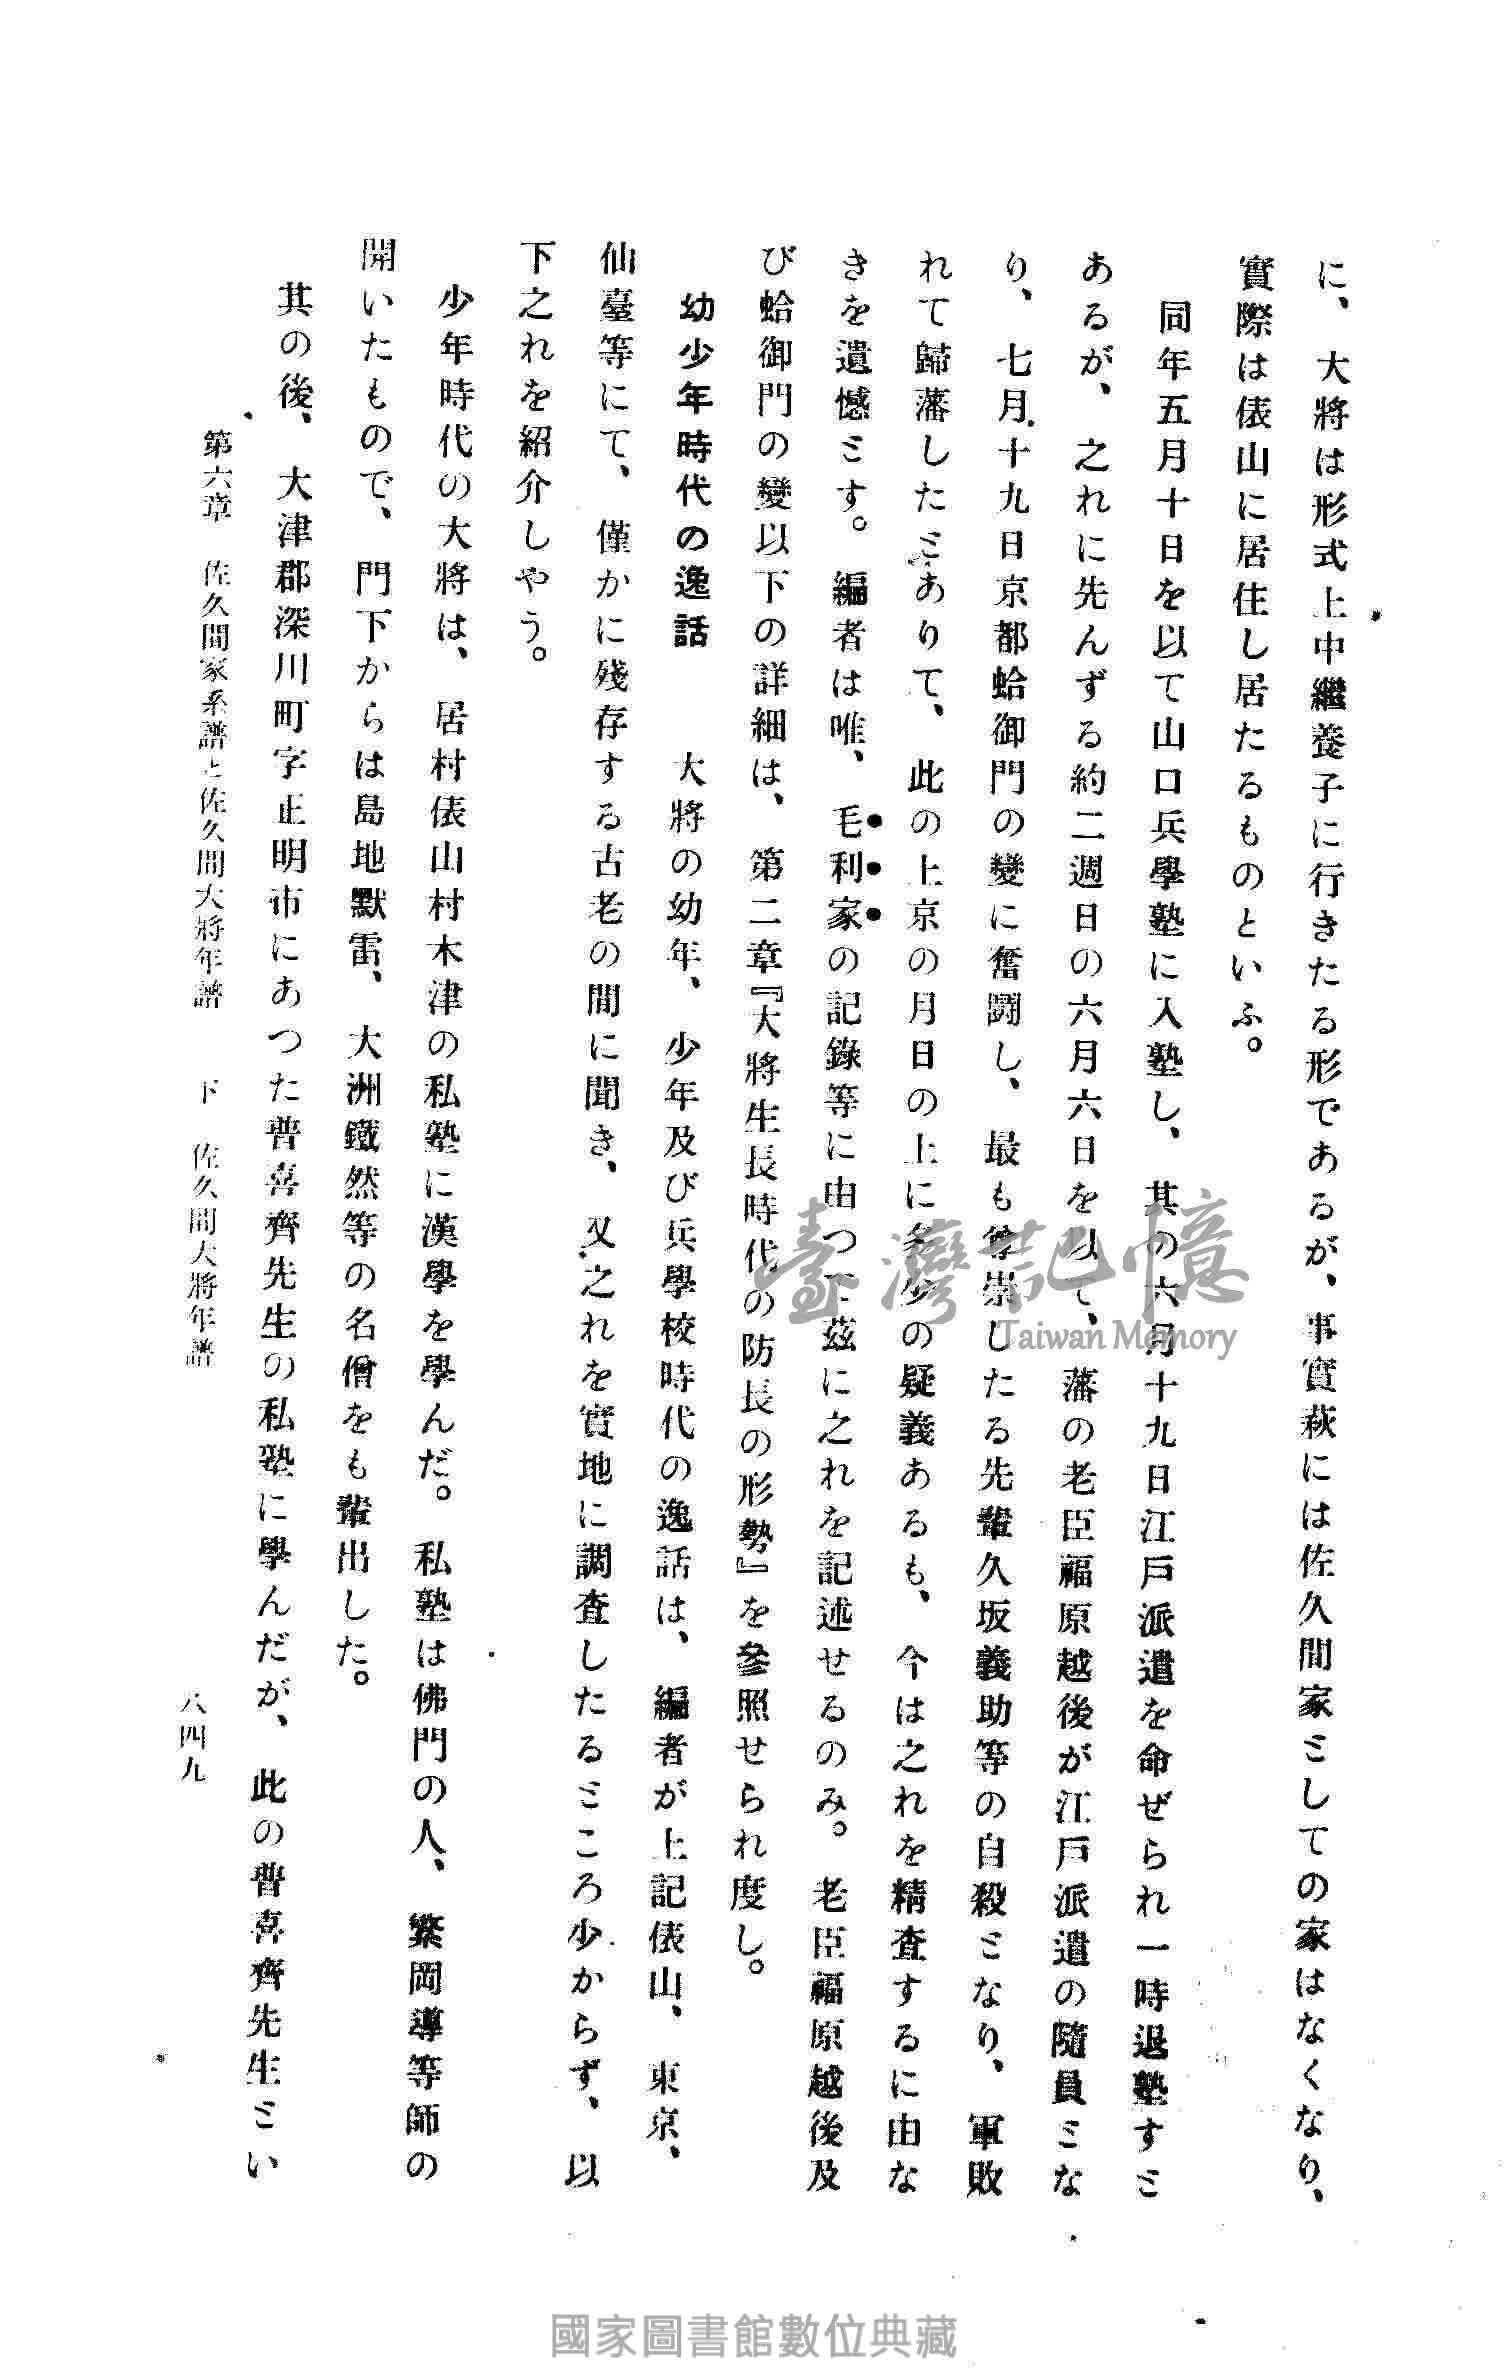 に、大將は形式上中繼養子に行きたる形であるが、事實萩には佐久間家ミしての家はなくなり、
實際は俵山に居住し居たるものといふ。
同年五月十日を以て山口兵學塾に入塾し、其の六月十九日江戸派遣を命ぜられ一時退塾すミ
あるが、之れに先んずる約二週日の六月六日を以て、藩の老臣福原越後が江戸派遣の隨員ミな
り、七月十九日京都蛤御門の變に奮鬪し、最も尊崇したる先輩久坂義助等の自殺ミなり、軍敗
れて歸藩したミありて、此の上京の月日の上に多少の疑義あるも、今は之れを精査するに由な
きを遺憾ミす。編者は唯、毛利家の記錄等に由つて茲に之れを記述せるのみ。老臣福原越後及
び蛤御門の變以下の詳細は、第二章『大將生長時代の防長の形勢』を參照せられ度し。
幼少年時代の逸話 大將の幼年、少年及び兵學校時代の逸話は、編者が上記俵山、東京、
仙臺等にて、僅かに殘存する古老の間に聞き、又之れを實地に調査したるミころ少からず、以
下之れを紹介しやう。
少年時代の大將は、居村俵山村木津の私塾に漢學を學んだ。私塾は佛門の人、繁岡導等師の
開いたもので、門下からは島地默雷、大洲鐵然等の名僧をも輩出した。
其の後、大津郡深川町字正明市にあつた普喜齊先生の私塾に學んだが、此の普喜齊先生ミい
第六章 佐久間家系譜と佐久間大將年譜 下 佐久間大將年譜
八四九
臺灣記憶
Taiwan Memory
國家圖書館數位典藏